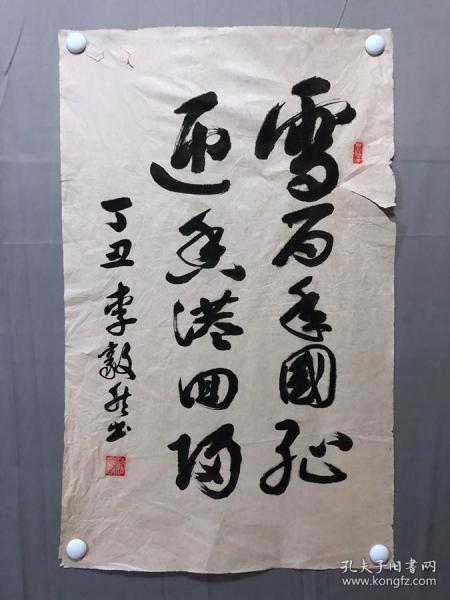 雪百年國耻
迎香港回歸
丁丑 李毅然书
孔夫子旧书网
www.kongfz.com